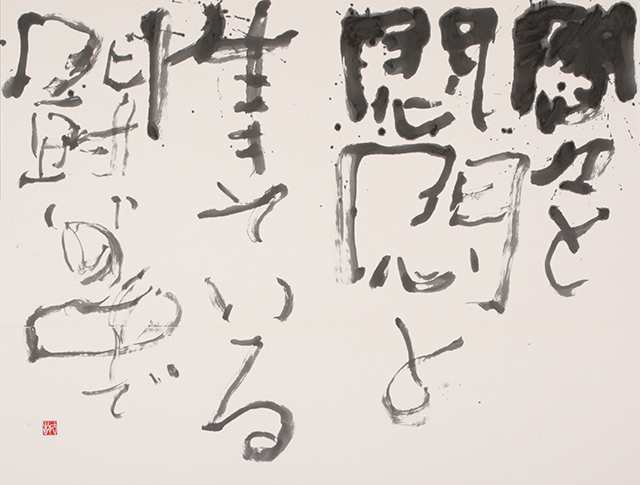 悶々と
悶悶と
生きている
の中で